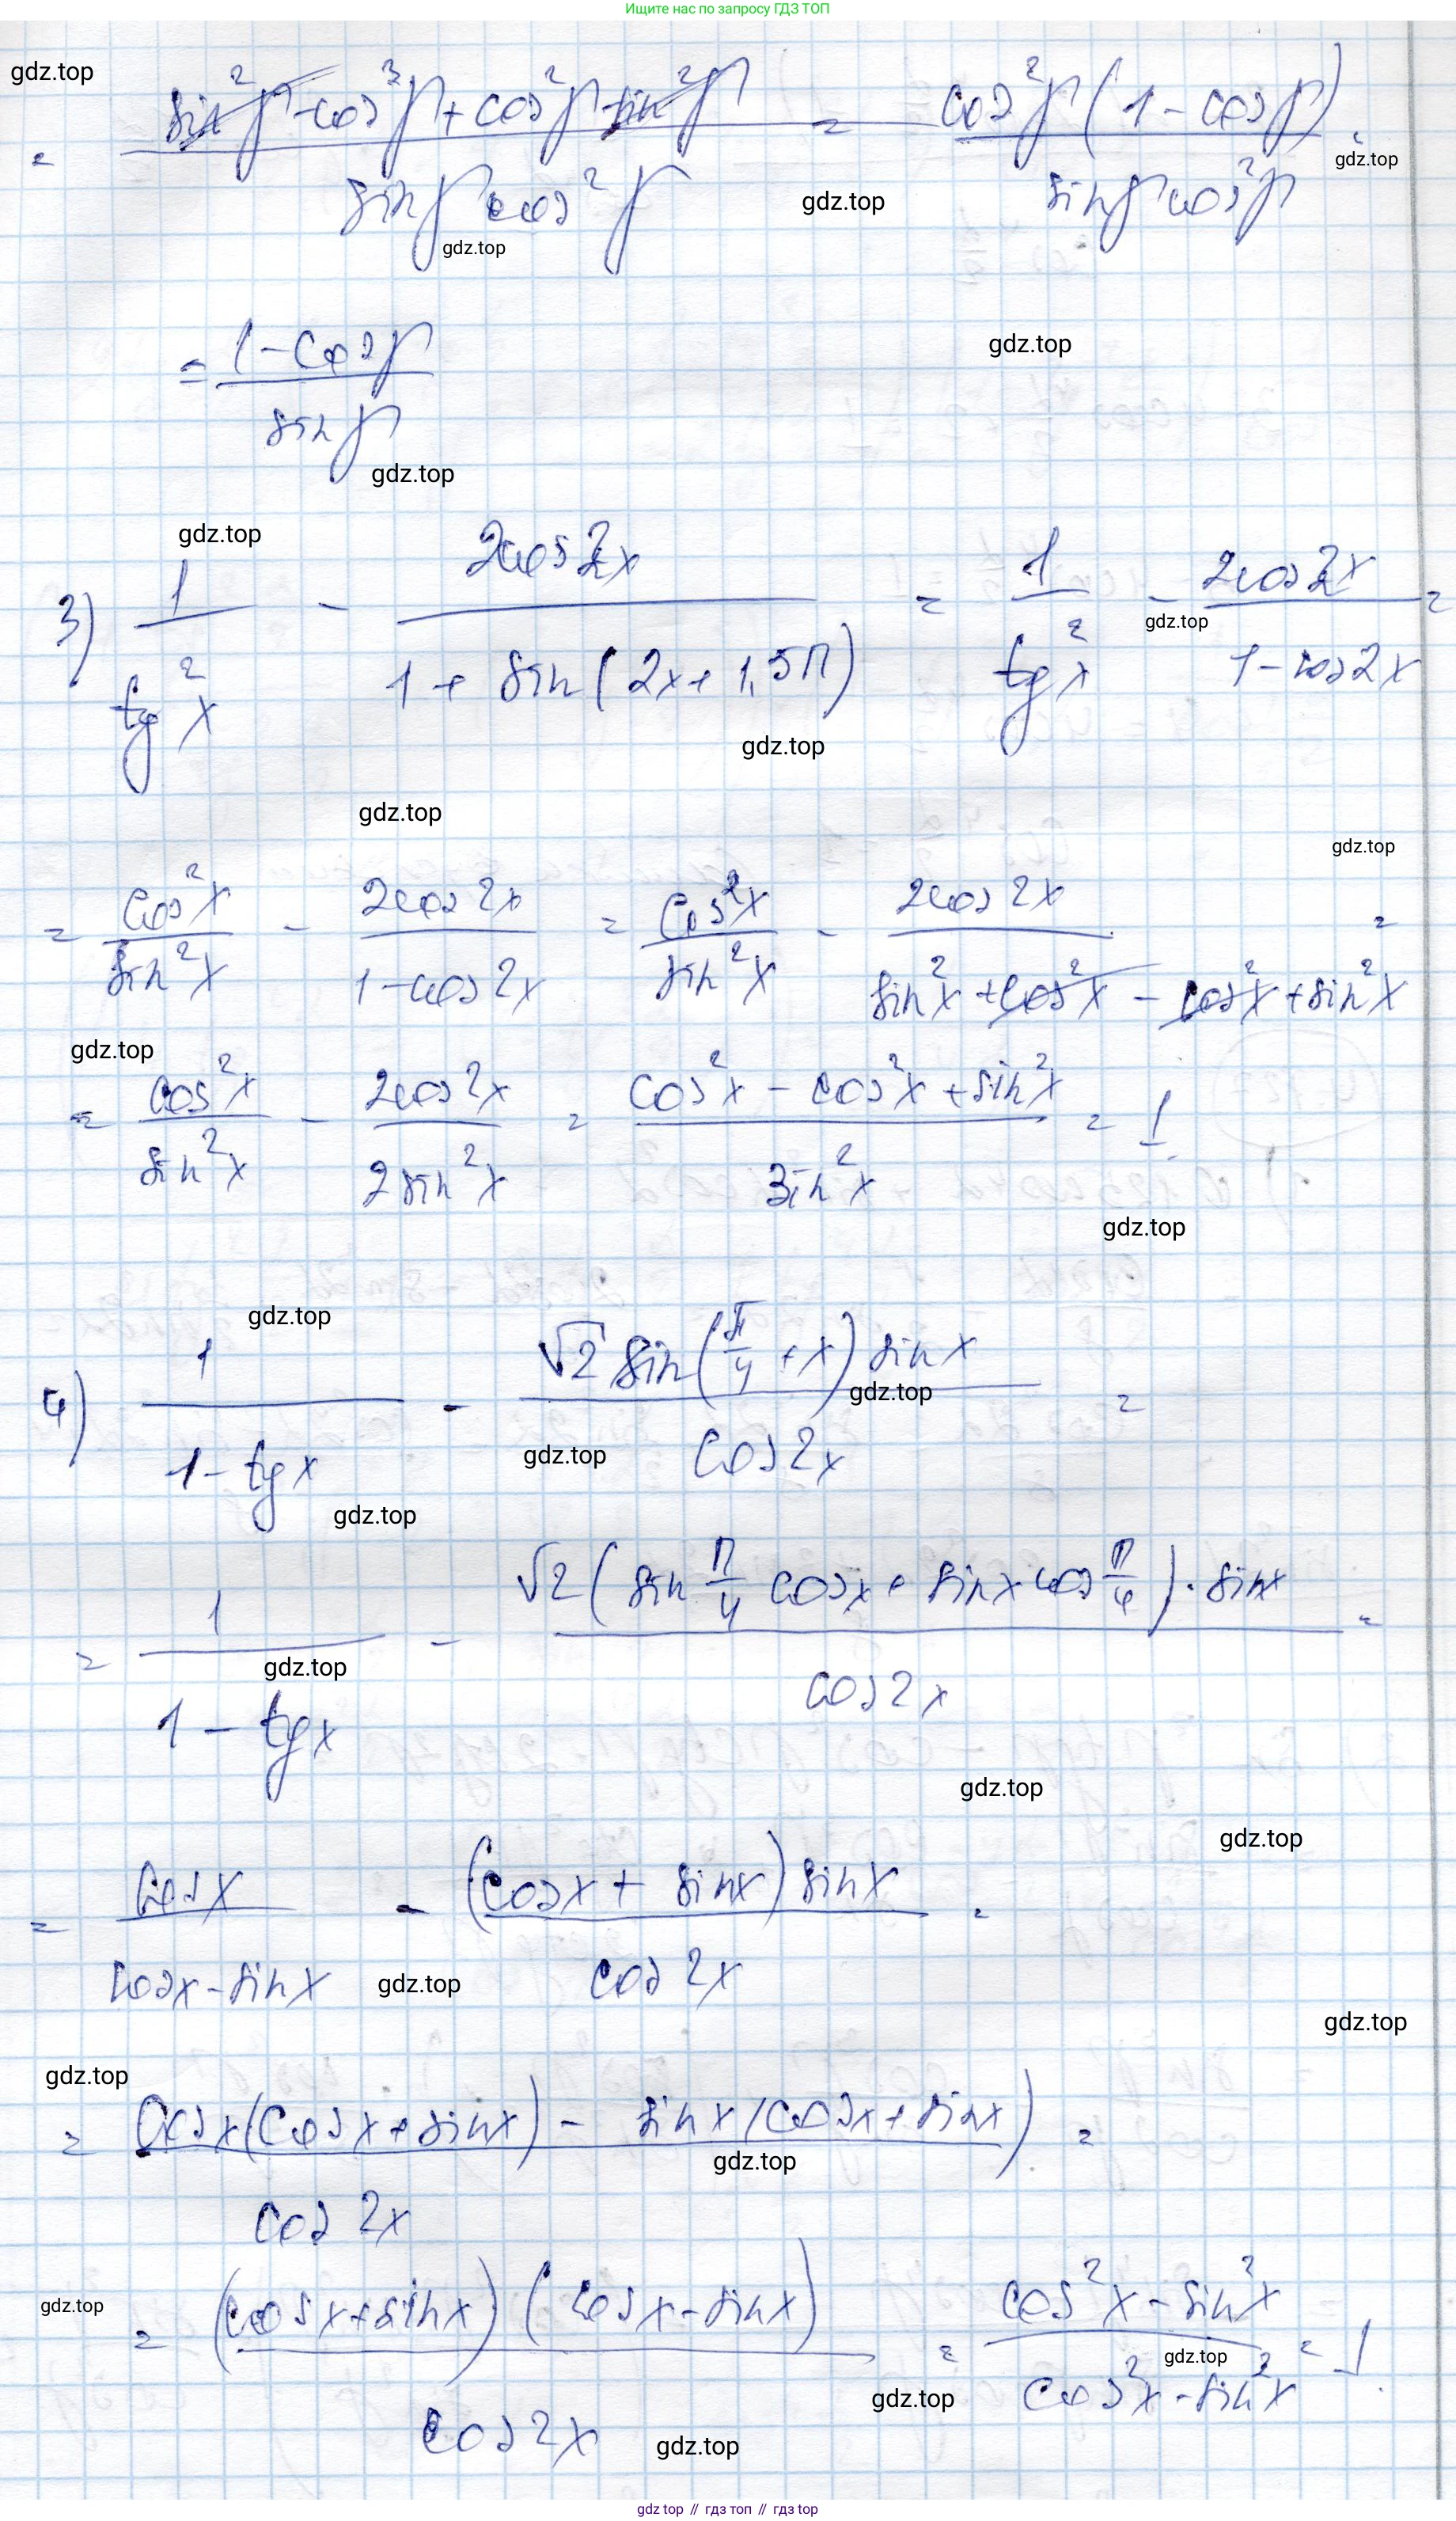 Ищите нас по запросу ГДЗ ТОП
gdz.top
= (sin²γ - cos³γ + cos²γ - sin²γ) / (sinγ cos²γ) = cos²γ(1 - cosγ) / (sinγ cos²γ) =
gdz.top
gdz.top
gdz.top
= (1 - cosγ) / sinγ
gdz.top
gdz.top
gdz.top
3) 1 / tg²x - 2cos2x / (1 + sin(2x + 1,5π)) = 1 / tg²x - 2cos2x / (1 - cos2x) =
gdz.top
gdz.top
gdz.top
gdz.top
= cos²x / sin²x - 2cos2x / (1 - cos2x) = cos²x / sin²x - 2cos2x / (sin²x + cos²x - cos²x + sin²x) =
gdz.top
= cos²x / sin²x - 2cos2x / 2sin²x = (cos²x - cos²x + sin²x) / sin²x = 1.
gdz.top
gdz.top
4) 1 / (1 - tgx) - √2 sin(π/4 + x) sinx / cos2x =
gdz.top
gdz.top
gdz.top
= 1 / (1 - tgx) - √2(sin π/4 cosx + sinx cos π/4) · sinx / cos2x =
gdz.top
gdz.top
gdz.top
= cosx / (cosx - sinx) - (cosx + sinx) sinx / cos2x =
gdz.top
gdz.top
gdz.top
= (cosx(cosx + sinx) - sinx(cosx + sinx)) / cos2x =
gdz.top
gdz.top
= (cosx + sinx)(cosx - sinx) / cos2x = (cos²x - sin²x) / (cos²x - sin²x) = 1.
gdz.top
gdz.top
gdz.top
gdz top // гдз топ // гдз top